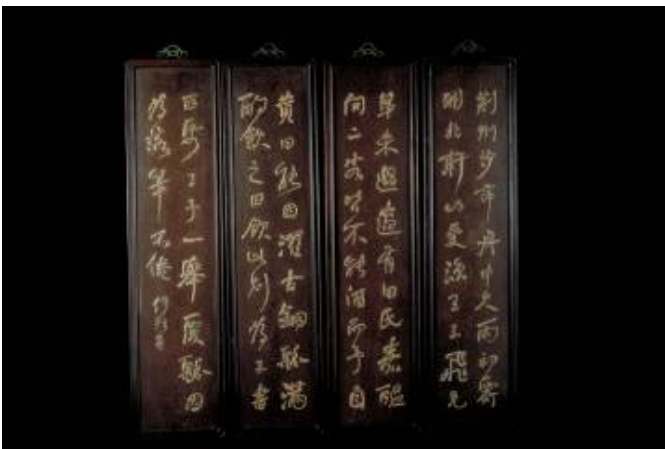 荆州沙市舟中久雨初霽
開北軒以受涼王子飛兄
弟来過適有田氏嘉醖
問二客皆不能酒而予自
贊曰能因濯古銅瓢滿
酌飲之曰飲此則為子書
子一舉覆瓢因
為落筆不倦